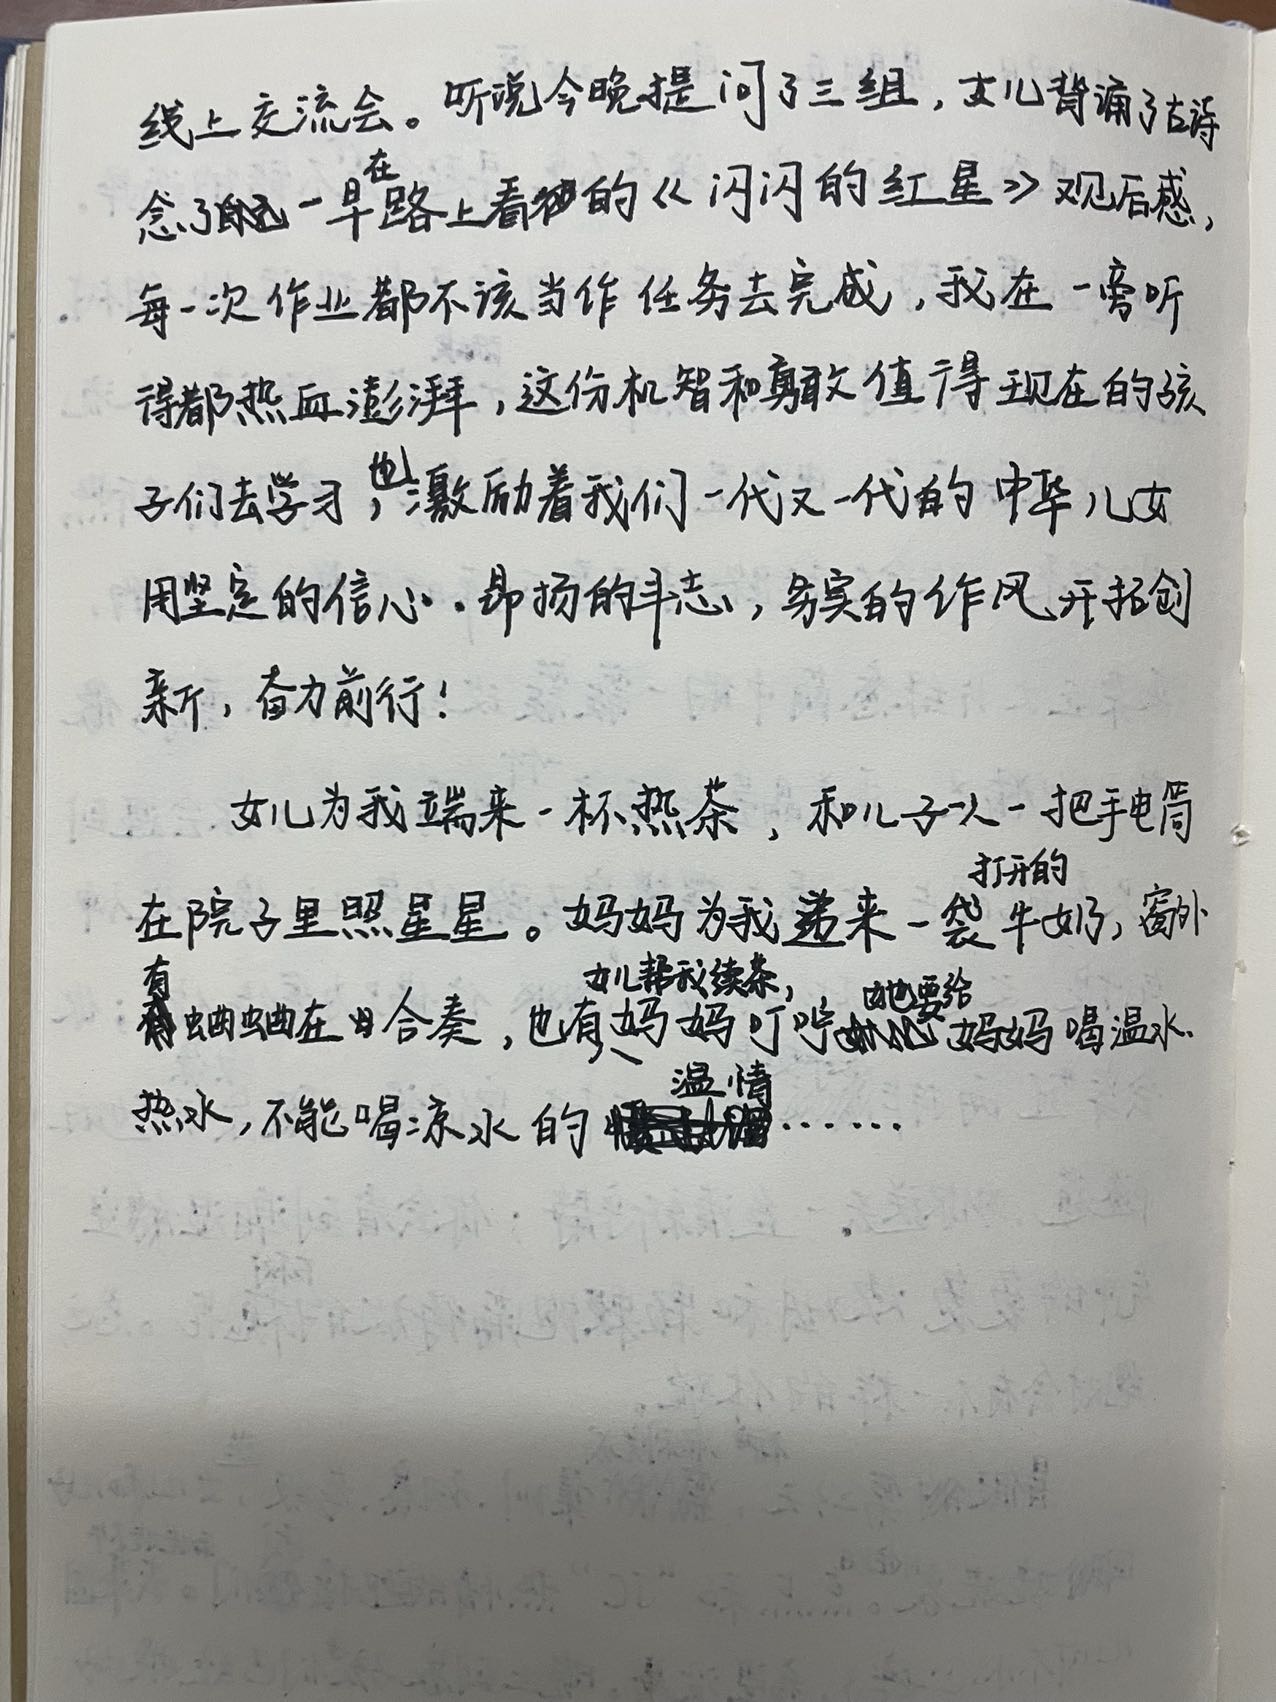 线上交流会。听说今晚提问了三组，女儿背诵了古诗
念了一早在路上看的《闪闪的红星》观后感，
每一次作业都不该当作任务去完成，我在一旁听
得都热血澎湃，这份机智和勇敢值得现在的孩
子们去学习，也激励着我们一代又一代的中华儿女
用坚定的信心、昂扬的斗志，务实的作风开拓创
新，奋力前行！
女儿为我端来一杯热茶，和儿子一人一把手电筒
在院子里照星星。妈妈为我递来一袋打开的牛奶，窗外
有蛐蛐在合奏，也有女儿帮我续茶，妈妈叮咛她要给妈妈喝温水、
热水，不能喝凉水的温情……